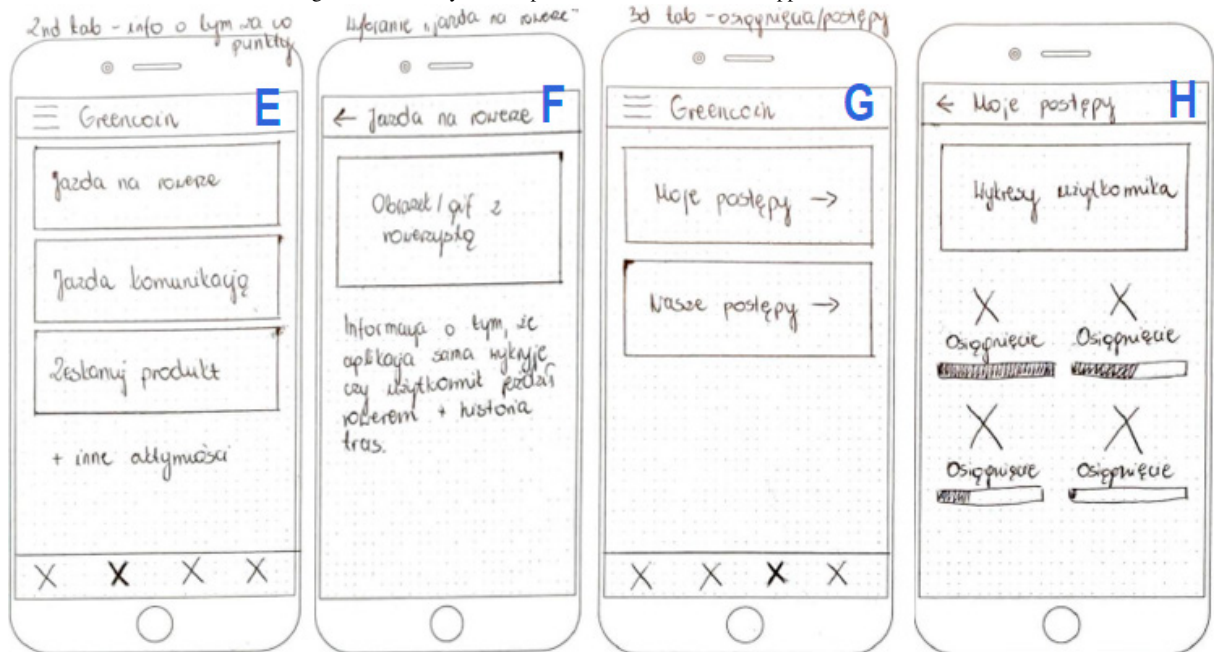 2nd tab - info o tym za co
punkty
E
Greencoin
Jazda na rowerze
Jazda komunikacją
Zeskanuj produkt
+ inne aktywności
Wybranie „jazda na rowerze”
F
← Jazda na rowerze
Obrazek / gif z
rowerzystą
Informacja o tym, że
aplikacja sama wykryje,
czy użytkownik jeździ
rowerem + historia
tras.
3d tab - osiągnięcia/postępy
G
Greencoin
Moje postępy →
Nasze postępy →
H
← Moje postępy
Wykresy użytkownika
Osiągnięcie
Osiągnięcie
Osiągnięcie
Osiągnięcie